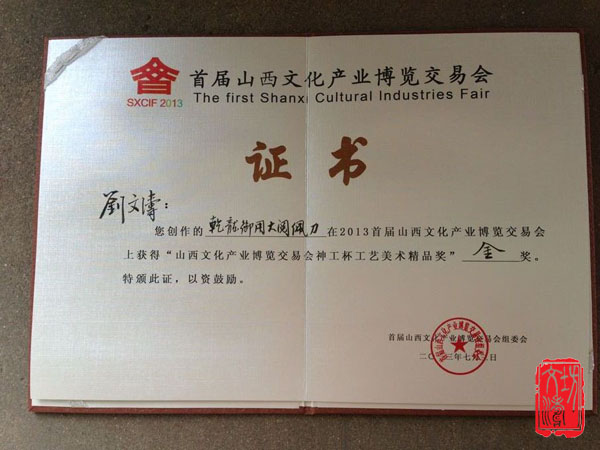 SXCIF 2013
首届山西文化产业博览交易会
The first Shanxi Cultural Industries Fair
证书
劉文濤:
您创作的 乾龍御用大阅佩刀 在2013首届山西文化产业博览交易会
上获得“山西文化产业博览交易会神工杯工艺美术精品奖” 金 奖。
特颁此证，以资鼓励。
首届山西文化产业博览交易会组委会
二〇一三年七月